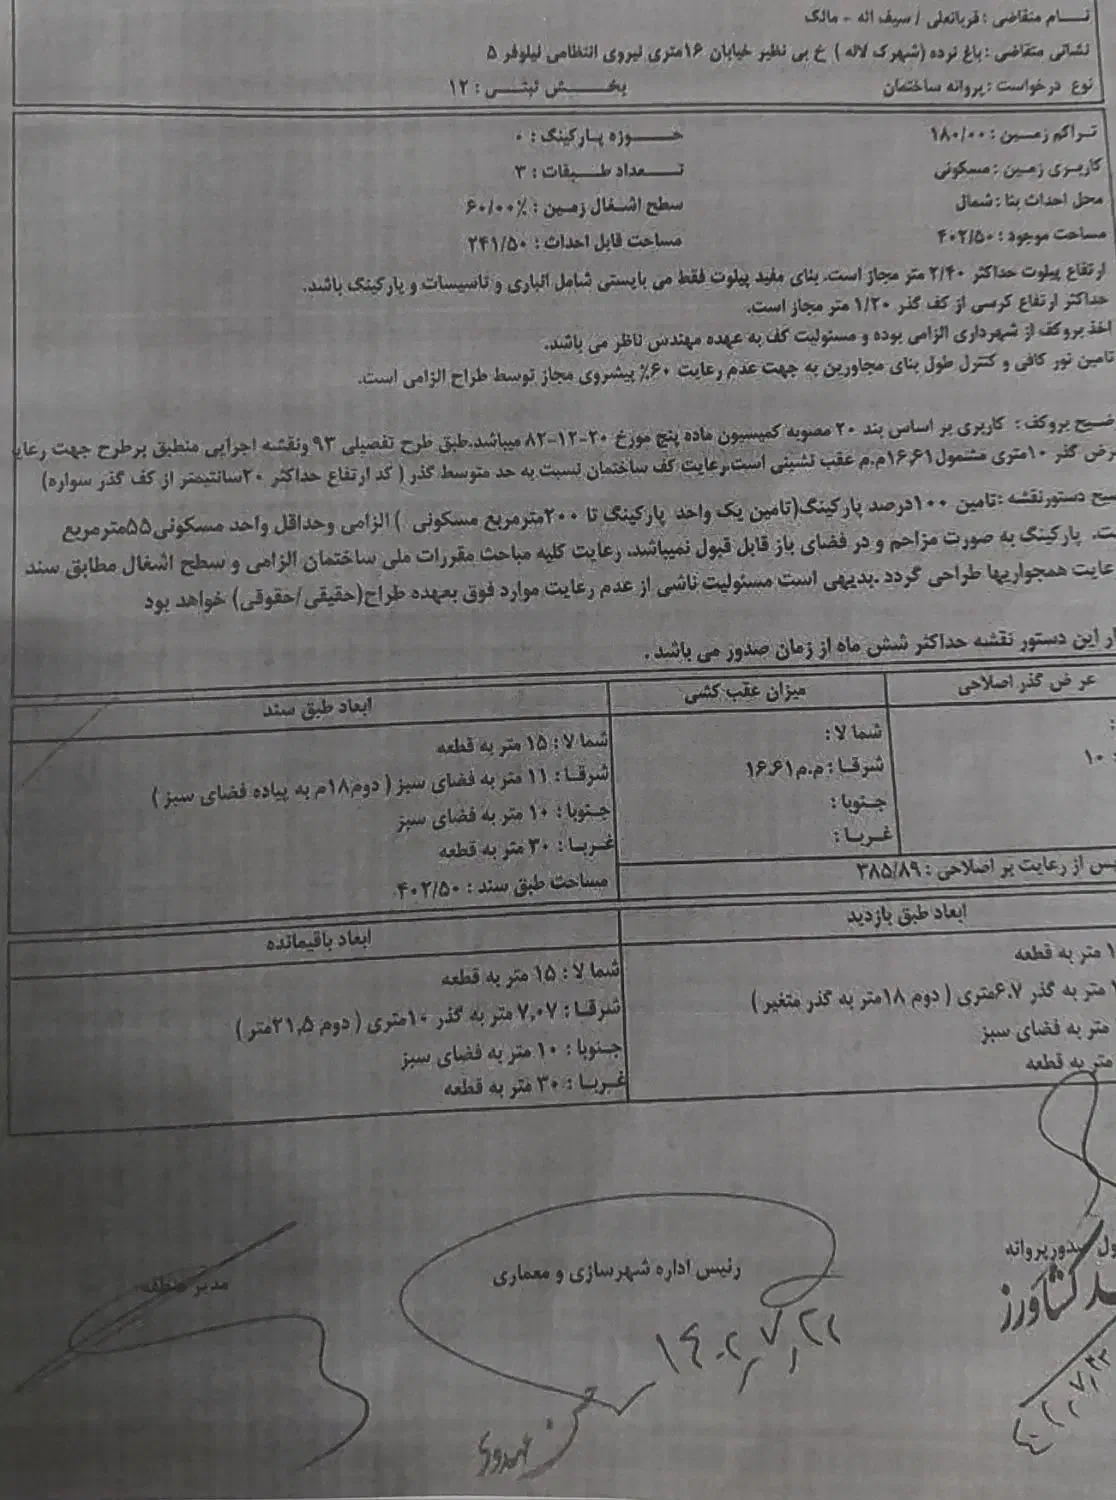 نـــام متقاضی : قربانعلی / سیف اله - مالک
نشانی متقاضی : باغ نرده (شهرک لاله ) خ بی نظیر خیابان ۱۶متری نیروی انتظامی نیلوفر ۵
نوع درخواست : پروانه ساختمان
بخـــش ثبتـــی : ۱۲
تـراکم زمـین : ۱۸۰/۰۰
حـــوزه پـارکینگ : ۰
کاربـری زمـین : مسکونی
تـــعداد طــبقات : ۳
محل احداث بنا : شمال
سطح اشـغال زمین : ۶۰/۰۰٪
مساحت موجود : ۴۰۲/۵۰
مساحت قابل احداث : ۲۴۱/۵۰
ارتفاع پیلوت حداکثر ۲/۴۰ متر مجاز است. بنای مفید پیلوت فقط می بایستی شامل انباری و تاسیسات و پارکینگ باشد.
حداکثر ارتفاع کرسی از کف گذر ۱/۲۰ متر مجاز است.
اخذ بروکف از شهرداری الزامی بوده و مسئولیت کف به عهده مهندس ناظر می باشد.
تامین نور کافی و کنترل طول بنای مجاورین به جهت عدم رعایت ۶۰٪ پیشروی مجاز توسط طراح الزامی است.
ضیح بروکف : کاربری بر اساس بند ۲۰ مصوبه کمیسیون ماده پنج مورخ ۲۰-۱۲-۸۲ میباشد.طبق طرح تفصیلی ۹۳ ونقشه اجرایی منطبق برطرح جهت رعای
رض گذر ۱۰متری مشمول۱۶.۶۱م.م عقب نشینی است.رعایت کف ساختمان نسبت به حد متوسط گذر ( کد ارتفاع حداکثر ۲۰سانتیمتر از کف گذر سواره)
یح دستورنقشه :تامین ۱۰۰درصد پارکینگ(تامین یک واحد پارکینگ تا ۲۰۰مترمربع مسکونی ) الزامی وحداقل واحد مسکونی۵۵مترمربع
ت. پارکینگ به صورت مزاحم و در فضای باز قابل قبول نمیباشد. رعایت کلیه مباحث مقررات ملی ساختمان الزامی و سطح اشغال مطابق سند
عایت همجواریها طراحی گردد .بدیهی است مسئولیت ناشی از عدم رعایت موارد فوق بعهده طراح(حقیقی/حقوقی) خواهد بود
ار این دستور نقشه حداکثر شش ماه از زمان صدور می باشد .
عرض گذر اصلاحی
میزان عقب کشی
ابعاد طبق سند
: ۱۰
شما لا :
شرقـا : م.م۱۶.۶۱
جـنوبا :
غـربـا :
شما لا : ۱۵ متر به قطعه
شرقـا : ۱۱ متر به فضای سبز ( دوم۱۸م به پیاده فضای سبز )
جـنوبا : ۱۰ متر به فضای سبز
غـربـا : ۳۰ متر به قطعه
پس از رعایت بر اصلاحی : ۳۸۵/۸۹
مساحت طبق سند : ۴۰۲/۵۰
ابعاد طبق بازدید
ابعاد باقیمانده
متر به قطعه
متر به گذر ۶.۷متری ( دوم ۱۸متر به گذر متغیر )
متر به فضای سبز
متر به قطعه
شما لا : ۱۵ متر به قطعه
شرقـا : ۷,۰۷ متر به گذر ۱۰متری ( دوم ۲۱,۵متر )
جـنوبا : ۱۰ متر به فضای سبز
غـربـا : ۳۰ متر به قطعه
ول صدورپروانه
کشاورز
رئیس اداره شهرسازی و معماری
۱۴۰۲,۷,۲۲
مدیر منطقه